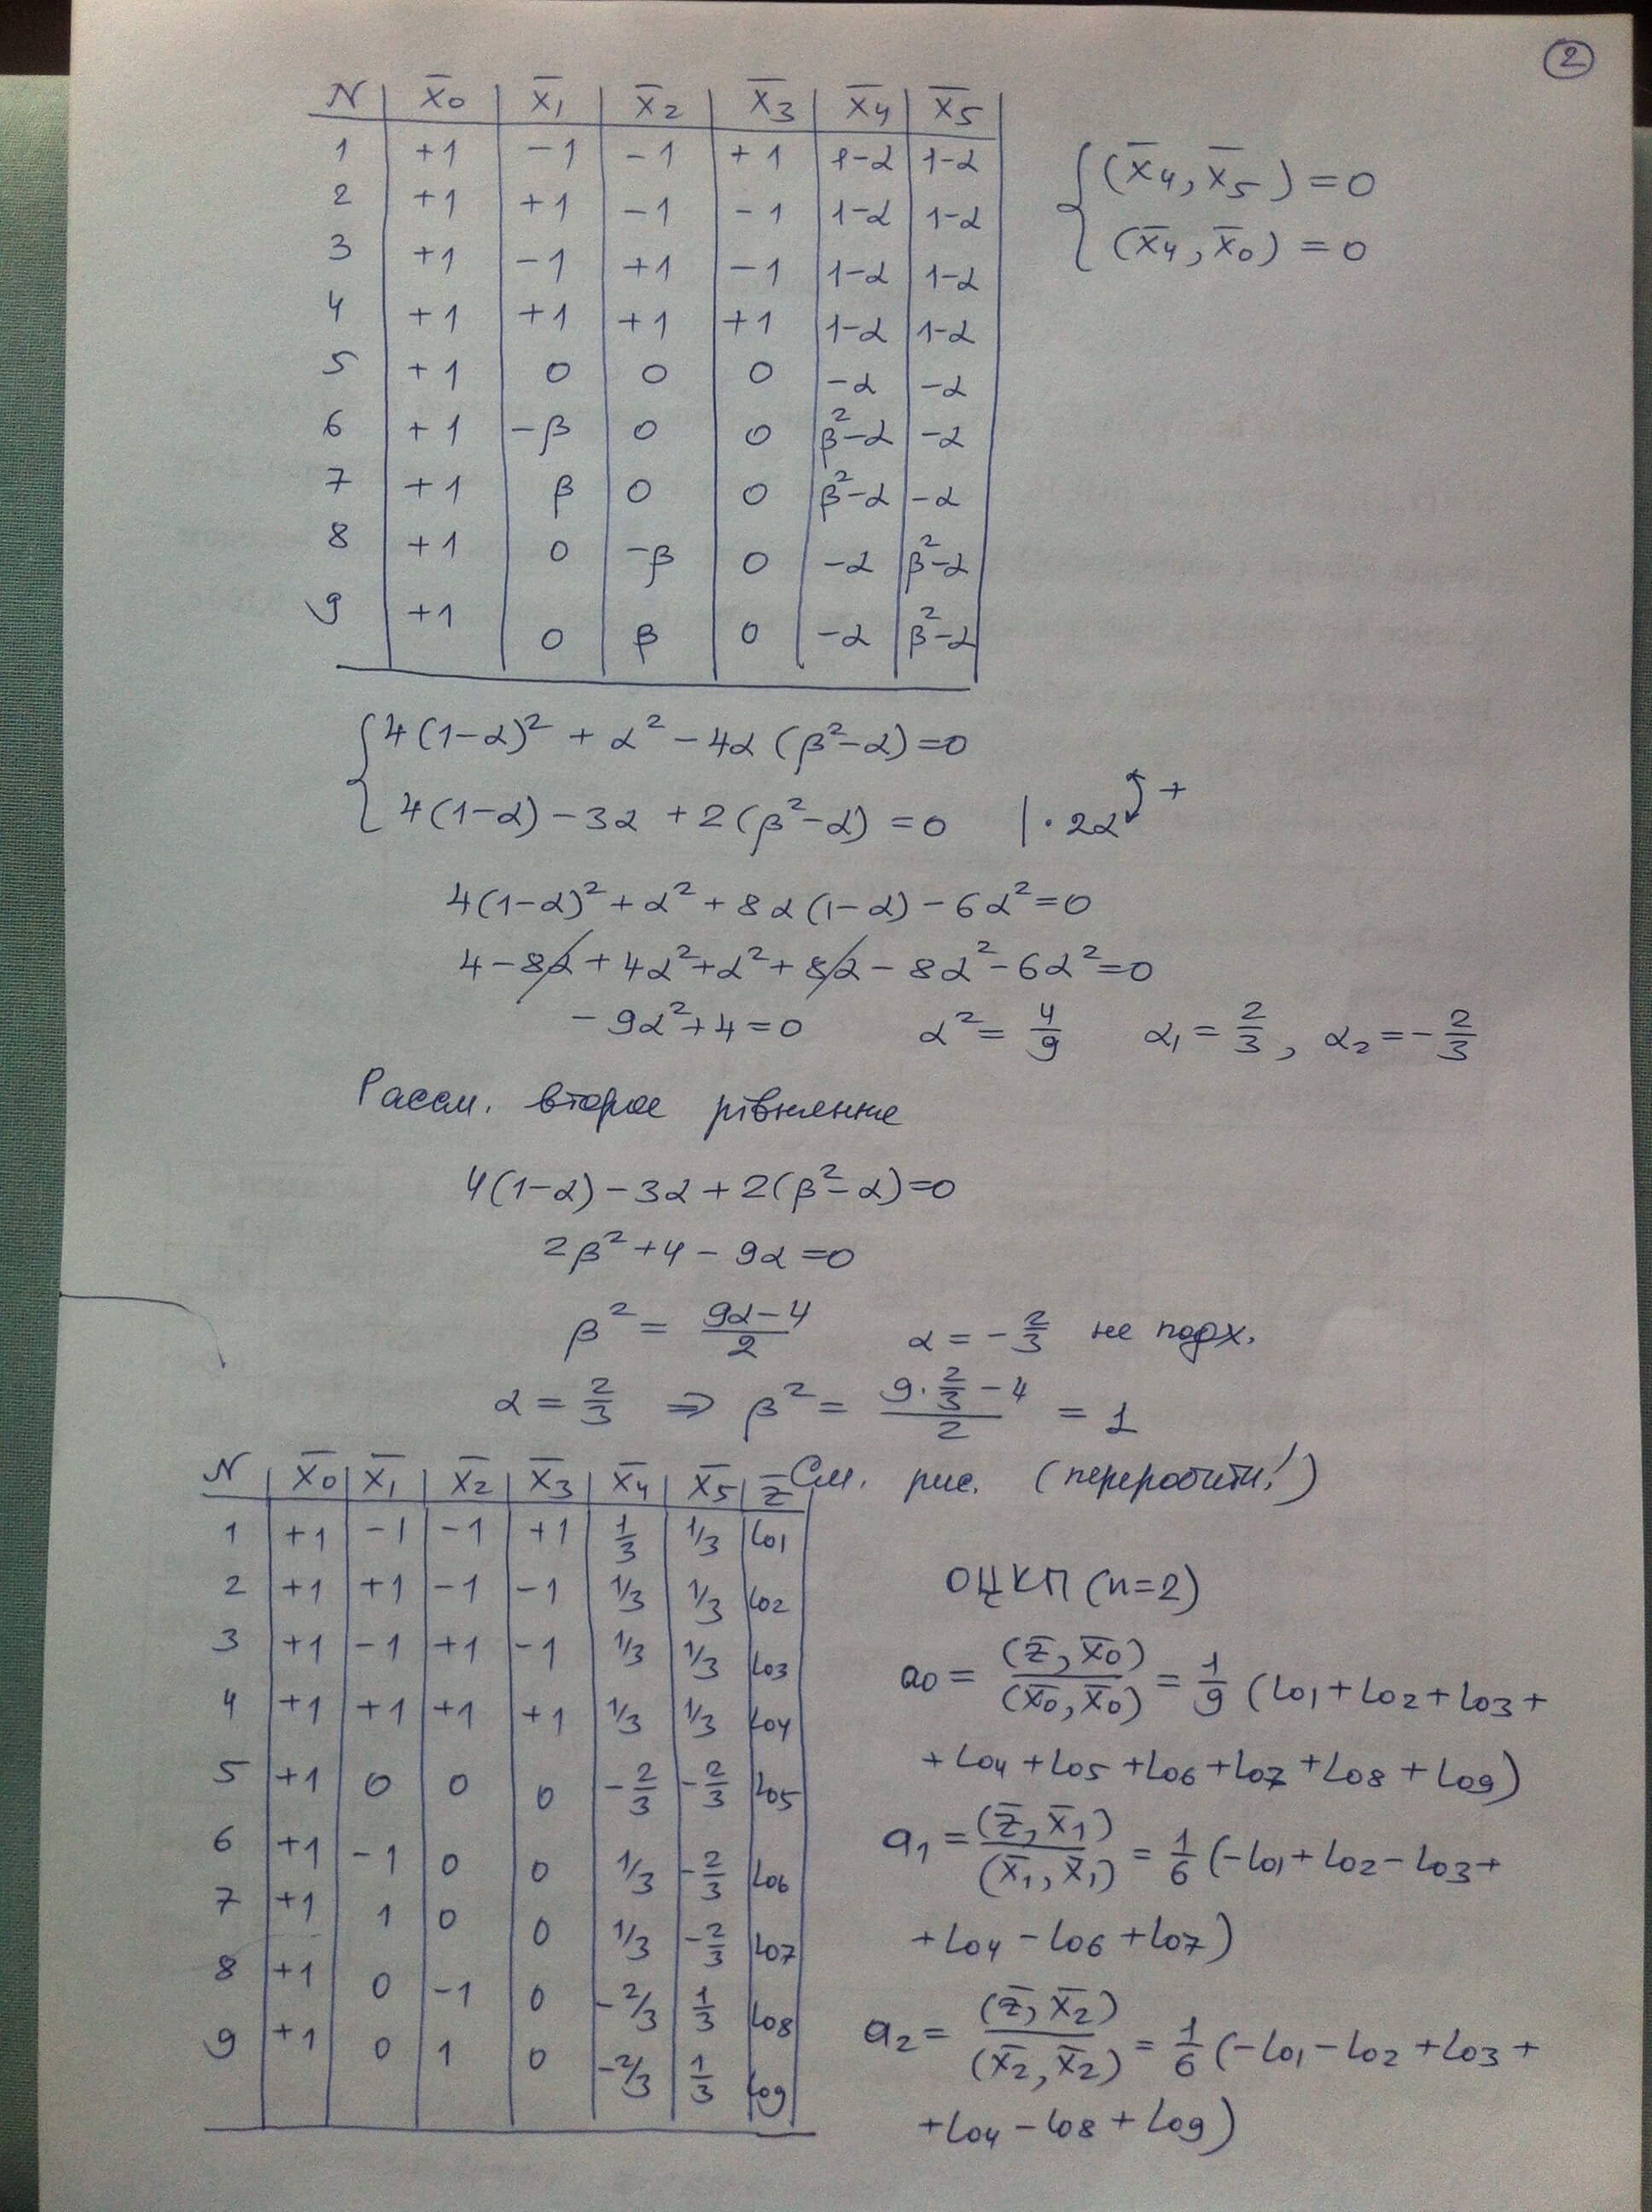 2
N | x̄0 | x̄1 | x̄2 | x̄3 | x̄4 | x̄5
1 | +1 | -1 | -1 | +1 | 1-α | 1-α
2 | +1 | +1 | -1 | -1 | 1-α | 1-α
3 | +1 | -1 | +1 | -1 | 1-α | 1-α
4 | +1 | +1 | +1 | +1 | 1-α | 1-α
5 | +1 | 0 | 0 | 0 | -α | -α
6 | +1 | -β | 0 | 0 | β²-α | -α
7 | +1 | β | 0 | 0 | β²-α | -α
8 | +1 | 0 | -β | 0 | -α | β²-α
9 | +1 | 0 | β | 0 | -α | β²-α
{ (x̄4, x̄5) = 0
(x̄4, x̄0) = 0
{ 4(1-α)² + α² - 4α(β²-α) = 0
4(1-α) - 3α + 2(β²-α) = 0 | · 2α +
4(1-α)² + α² + 8α(1-α) - 6α² = 0
4 - 8α + 4α² + α² + 8α - 8α² - 6α² = 0
-9α² + 4 = 0 α² = 4/9 α1 = 2/3, α2 = -2/3
Рассм. второе рівнение
4(1-α) - 3α + 2(β²-α) = 0
2β² + 4 - 9α = 0
β² = (9α-4)/2 α = -2/3 не подх.
α = 2/3 ⇒ β² = (9·2/3 - 4)/2 = 1
См. рис. (переробити!)
N | x̄0 | x̄1 | x̄2 | x̄3 | x̄4 | x̄5 | z̄
1 | +1 | -1 | -1 | +1 | 1/3 | 1/3 | L01
2 | +1 | +1 | -1 | -1 | 1/3 | 1/3 | L02
3 | +1 | -1 | +1 | -1 | 1/3 | 1/3 | L03
4 | +1 | +1 | +1 | +1 | 1/3 | 1/3 | L04
5 | +1 | 0 | 0 | 0 | -2/3 | -2/3 | L05
6 | +1 | -1 | 0 | 0 | 1/3 | -2/3 | L06
7 | +1 | 1 | 0 | 0 | 1/3 | -2/3 | L07
8 | +1 | 0 | -1 | 0 | -2/3 | 1/3 | L08
9 | +1 | 0 | 1 | 0 | -2/3 | 1/3 | L09
ОЦКП (n=2)
a0 = (z̄, x̄0)/(x̄0, x̄0) = 1/9 (L01 + L02 + L03 +
+ L04 + L05 + L06 + L07 + L08 + L09)
a1 = (z̄, x̄1)/(x̄1, x̄1) = 1/6 (-L01 + L02 - L03 +
+ L04 - L06 + L07)
a2 = (z̄, x̄2)/(x̄2, x̄2) = 1/6 (-L01 - L02 + L03 +
+ L04 - L08 + L09)